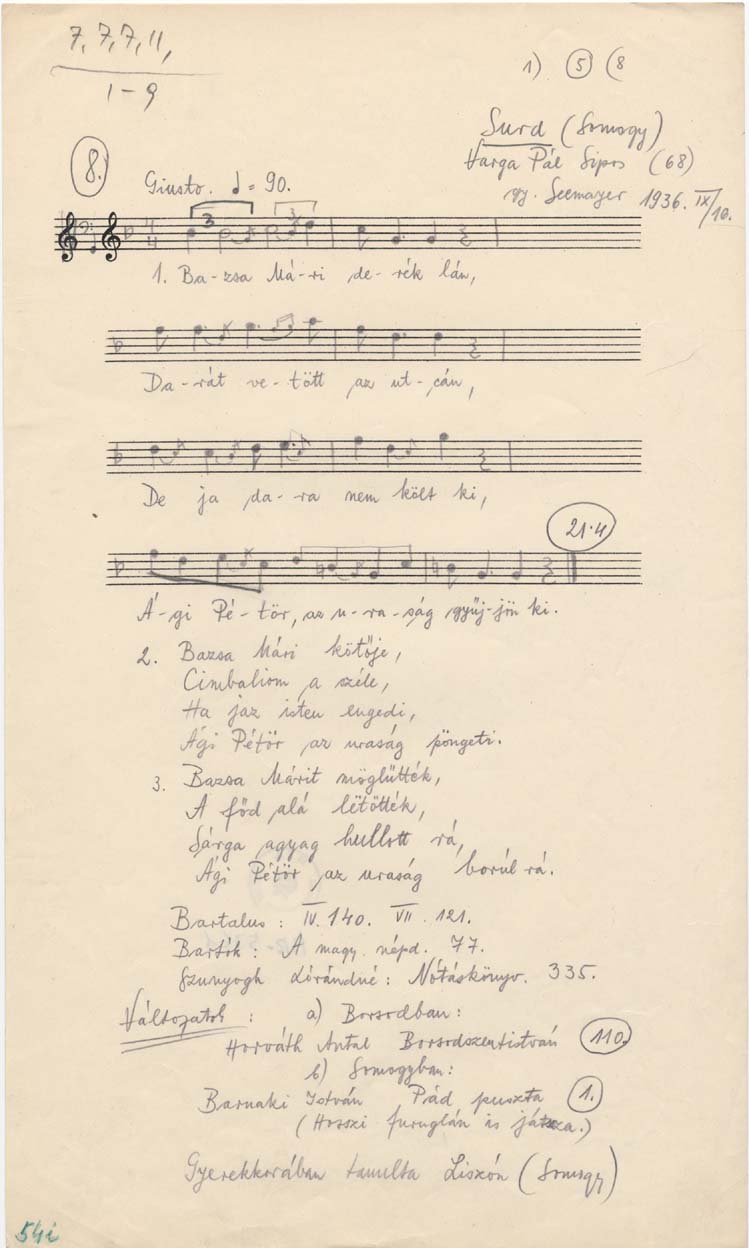 7, 7, 7, 11,
1-9
1) 5 (8
Surd (Somogy)
Varga Pál Sipos (68)
gy. Seemayer 1936. IX/10.
8.
Giusto. = 90.
4
4
3
3
1. Ba-zsa Má-ri de-rék lán,
Da-rát ve-tött az ut-cán,
De ja da-ra nem költ ki,
21·4
Á-gi Pé-tör, az u-ra-ság gyűj-jön ki.
2. Bazsa Mári kötője,
Cimbaliom a széle,
Ha jaz isten engedi,
Ági Pétör az uraság pöngeti.
3. Bazsa Márit möglütték,
A főd alá lëtötték,
Sárga agyag hullott rá,
Ági Pétör az uraság borúl rá.
Bartalus: IV. 140. VII. 121.
Bartók: A magy. népd. 77.
Szunyogh Lórándné: Nótáskönyv. 335.
Változatok: a) Borsodban:
Horváth Antal Borsodszentistván 110.
b) Somogyban:
Barnaki István Pád puszta 1.
(Hosszi furuglán is játsza.)
Gyerekkorában tanulta Liszón (Somogy)
54i